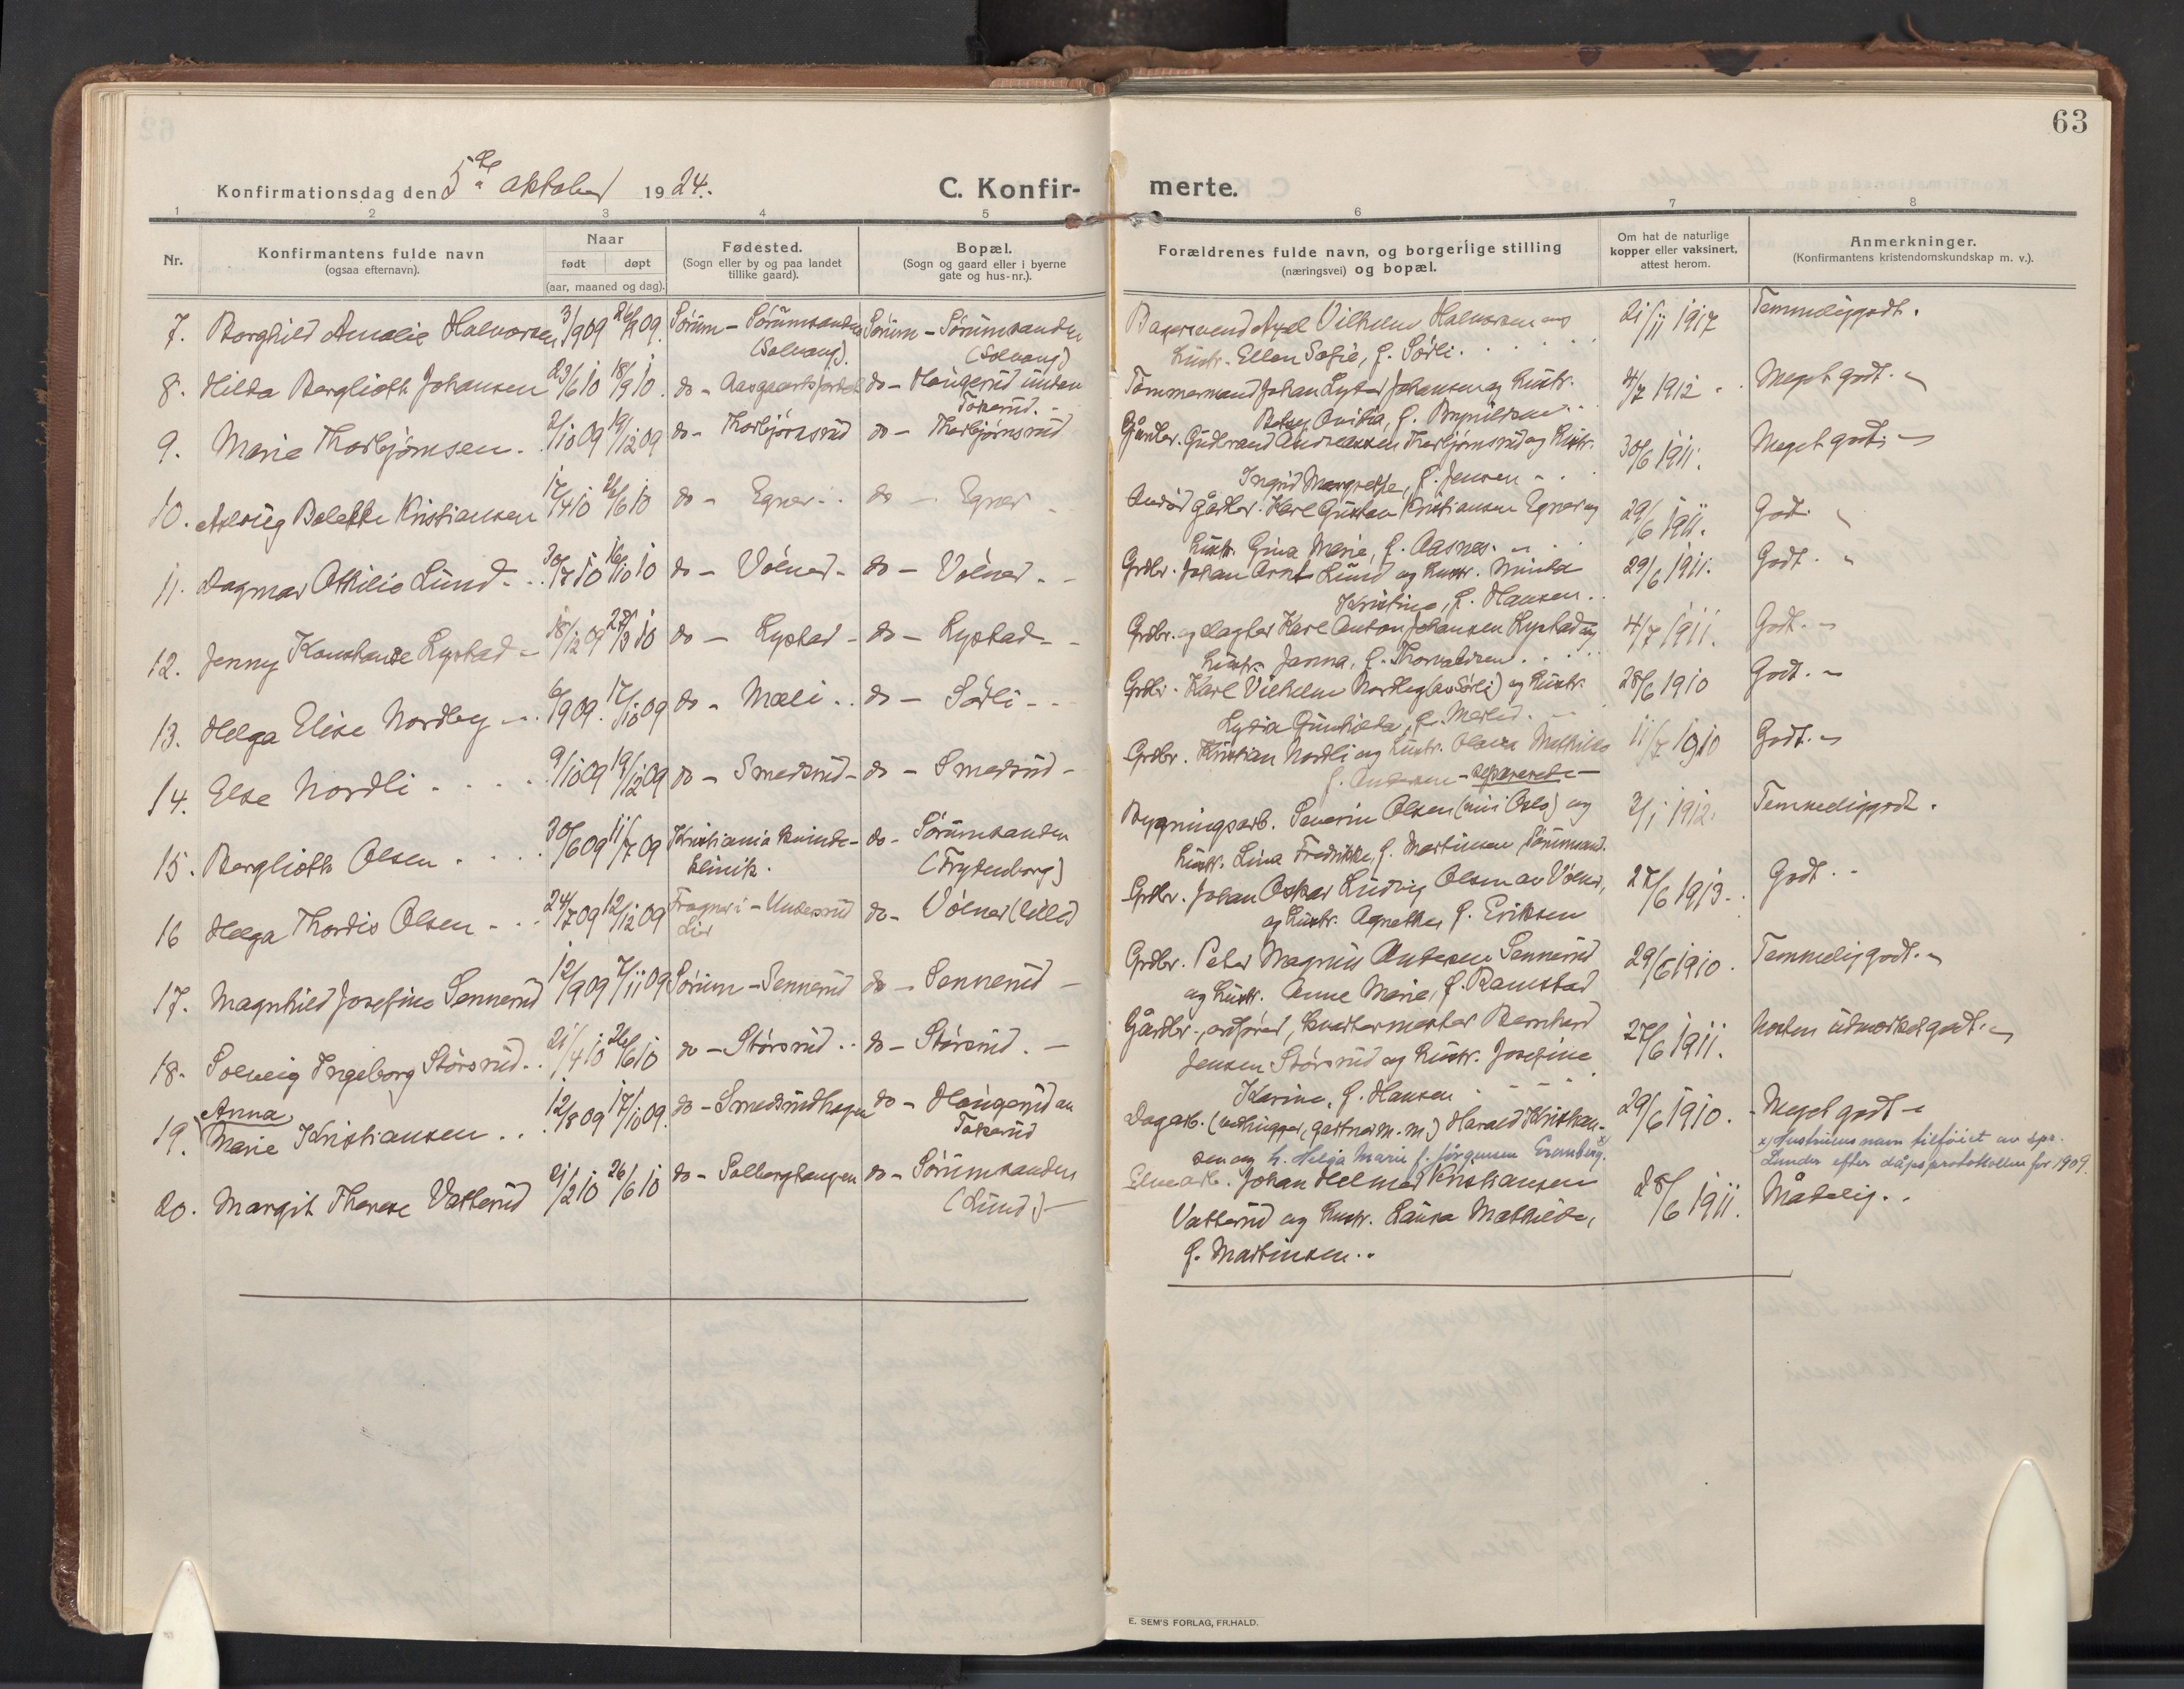 63
Konfirmationsdag den 5te oktober 1924.
C. Konfir-
merte.
1 2 3 4 5 6 7 8
Nr.
Konfirmantens fulde navn
(ogsaa efternavn).
Naar
født døpt
(aar, maaned og dag).
Fødested.
(Sogn eller by og paa landet
tillike gaard).
Bopæl.
(Sogn og gaard eller i byerne
gate og hus-nr.).
Forældrenes fulde navn, og borgerlige stilling
(næringsvei) og bopæl.
Om hat de naturlige
kopper eller vaksinert,
attest herom.
Anmerkninger.
(Konfirmantens kristendomskundskap m. v.).
7. Borghild Amalie Halvorsen 3/9 09 26/9 09. Sørum – Sørumsanden Sørum – Sørumsanden
(Solvang). (Solvang)
Axel Vilhelm Halvorsen og 21/11 1917 Temmelig godt.
hustr. Ellen Sofie, f. Sørli.
8. Hilda Berglioth Johansen 23/6 10 18/9 10. do – do – Haugerud under
Tokerud. –
Tømmermand Johan Johansen og hustr. 4/7 1912 Meget godt. –
f. Brynildsen
9. Marie Thorbjørnsen. 2/10 09 19/12 09 do – Thorbjørnsrud do – Thorbjørnsrud
Gårdbr. Gudbrand Andreassen Thorbjørnsrud og hustr. 30/6 1911. Meget godt. –
Ingrid Margrethe, f. Jensen –
10. Aslaug Bolette Kristiansen 17/4 10 26/6 10 do – Egner do – Egner –
Gårdbr. Karl Gustav Kristiansen Egner og 29/6 1911. Godt.
hustr. Gina Marie, f. Aasnes. –
11. Dagmar Othilie Lund 30/7 10 16/10 10 do – Vølner – do – Vølner –
Grdbr. Johan Arnt Lund og hustr. 29/6 1911. Godt.
Kristine, f. Hansen.
12. Jenny Konstanse Lystad – 18/12 09 28/3 10 do – Lystad – do – Lystad –
Grdbr. og slagter Karl Anton Johansen Lystad og 4/7 1911. Godt. –
hustr. Janna, f. Thorvaldsen.
13. Helga Elise Nordby – 6/9 09. 17/10 09 do – Mæli do – Sørli –
Grdbr. Karl Vilhelm Nordby (av Sørli) og hustr. 28/6 1910 Godt. –
Lydia Gunhilda, f.
14. Else Nordli 9/10 09 19/12 09 do – Smedsrud – do – Smedsrud –
Grdbr. Kristian Nordli og hustr. Mathilde 11/7 1910 Godt. –
f. Andersen – separerede –
15. Berglioth Olsen 30/6 09 11/7 09 Kristiania kvinde- do – Sørumsanden
klinik. (Frydenborg)
Bygningsarb. Severin Olsen og 2/1 1912. Temmelig godt.
hustr. Lina Fredrikke, f. Martinsen
16 Helga Thordis Olsen – 24/7 09 12/12 09 Fragner i – do – Vølner
Lier
Grdbr. Johan Oskar Ludvig Olsen av Vølner, 27/6 1913. Godt. –
og hustr. Agnethe, f. Eriksen
17. Magnhild Josefine Sennerud 12/9 09 7/11 09 Sørum – Sennerud do – Sennerud –
Grdbr. Peter Magnus Andersen Sennerud 29/6 1910. Temmelig godt. –
og hustr. Anne Marie, f. Ramstad
18. Solveig Ingeborg Størsrud. 21/4 10 26/6 10 do – Størsrud do – Størsrud. –
Gårdbr., ordfører, kvartermester Bernhard 27/6 1911. Næsten udmerket godt. –
Jensen Størsrud og hustr. Josefine
Karine, f. Hansen
Anna
19. Marie Kristiansen 12/8 09 17/10 09. do – Smedsrudhagen do – Haugerud av
Tokerud
Dagarb. (vedhugger, gartner m. m.) Harald Kristian- 29/6 1910. – Meget godt –
sen og h. Helga Marie f. Jørgensen Grønberg. x) x) Hustruens navn tilføiet av spr.
Lunder efter dåpsprotokollen for 1909.
20. Margit Therese Vatterud 21/2 10 26/6 10 do – Solberghaugen do – Sørumsanden
(Lund) –
Johan Helmer Kristiansen 28/6 1911. Mådelig.
Vatterud og hustr. Laura Mathilde,
f. Martinsen.
E. SEM'S FORLAG, FR.HALD.